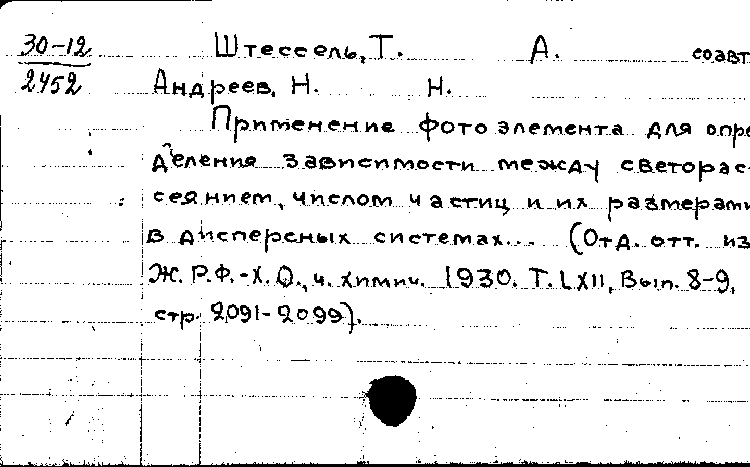 30-12 Штессель, Т. А. соавт
2452 Андреев, Н. Н.
Применение фотоэлемента для опре
деления зависимости между светорас-
сеянием, числом частиц и их размерами
в дисперсных системах... (Отд. отт. из
Ж.Р.Ф.-Х.О., ч. химич. 1930. Т. LXII, Вып. 8-9,
стр. 2091-2099).